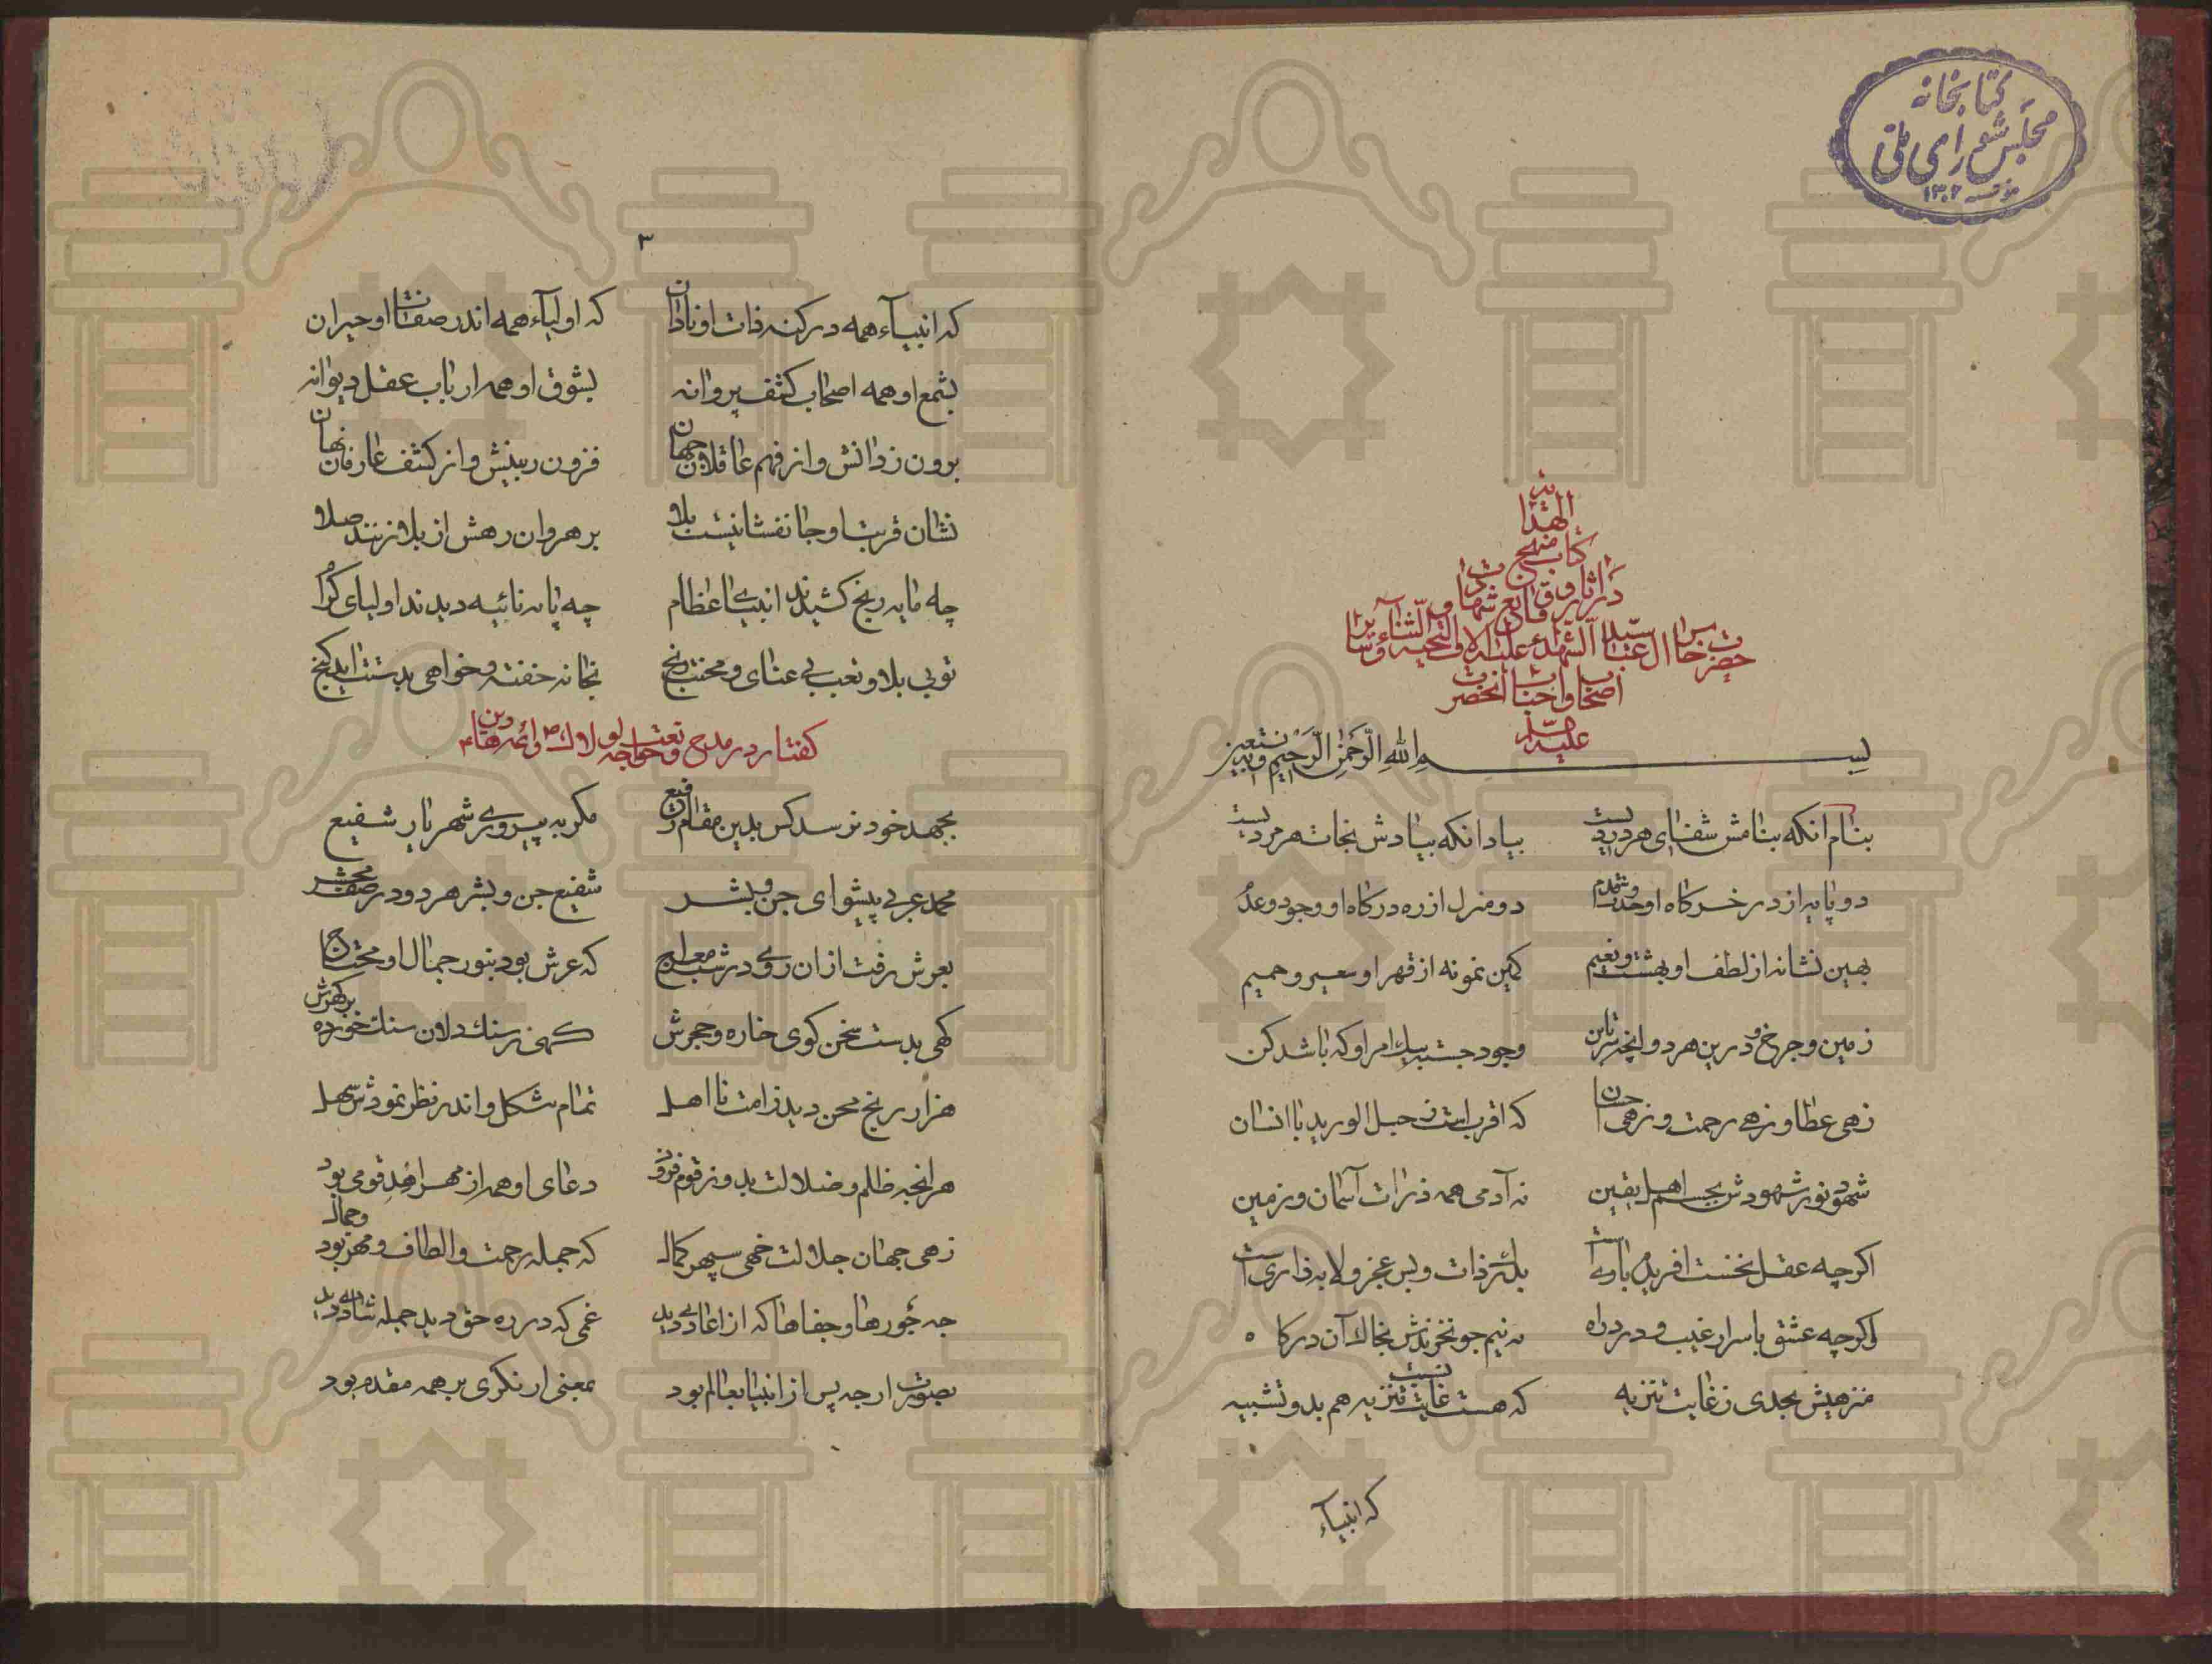 کتابخانه
مجلس شورای ملی
مؤسسه ۱۳۰۲
کتاب منهج
علیه السلام
بسم الله الرحمن الرحیم و به نستعین
بنام انکه بنامش شفای هر دردیست بیاد انکه بیادش نجات هر مردیست
دو پایه از در خرکاه او حدوث و قدم دو منزل از ره درکاه او وجود و عدم
بهین نشانه از لطف او بهشت و نعیم کمین نمونه از قهر او سعیر و حمیم
زمین و چرخ و درین هر دو انچه وجود جسته بیک امر او که باشد کن
زهی عطا و زهی رحمت و زهی احسان که اقربست ز حبل الورید با انسان
شهود نور شهودش بچشم اهل یقین نه آدمی همه ذرات آسمان و زمین
اکرچه عقل نخست افریده بدرک ذات ویش عجز و لابه و زاریست
وکرچه عشق باسرار غیب و در دراه به نیم جو نخرندش بخاک آن درکاه
منزهیش بجدی ز غایت تنزیه که هست غایت تنزیه هم بدو تشبیه
که انبیآء
۳
که انبیآء همه در کنه ذات او نادان که اولیآء همه اندر صفات او حیران
بشمع او همه اصحاب کشف پروانه بشوق او همه ارباب عقل دیوانه
برون ز دانش و از فهم عاقلان جهان فزون ز بینش و از کشف عارفان نهان
نشان قربت او جانفشانیست بلا برهروان رهش از بلا زنند صلا
چه مایه رنج کشیدند انبیای عظام چه پایه نائبه دیدند اولیای کرام
تو بی بلا و تعب بی عنای و محنت و رنج بخانه خفته و خواهی بدستت اید کنج
کفتار در مدح و نعت خواجه لولاک ص و ائمه هداة
بجهد خود نرسد کس بدین مقام رفیع مکر به پیروی شهریار شفیع
محمد عربی پیشوای جن و بشر شفیع جن و بشر هر دو در صف محشر
بعرش رفت از ان روی در شب معراج که عرش بود بنور جمال او محتاج
کهی بدست سخن کوی خاره و حجرش کهی ز سنک دلان سنک خورده بر کهرش
هزار رنج و محن دید ز امت نااهل تمام مشکل و اندر نظر نمودش سهل
هر انچه ظلم و ضلالت بد و ز قوم فزود دعای او همه از مهر اهد قومی بود
زهی جهان جلالت خهی سپهر کمال که جمله رحمت و الطاف و مهر بود و جمال
چه جورها و جفاها که از اعادی دید غمی که در ره حق دید جمله شادی دید
بصورت ار چه پس از انبیا بعالم بود بمعنی ار نکری بر همه مقدم بود